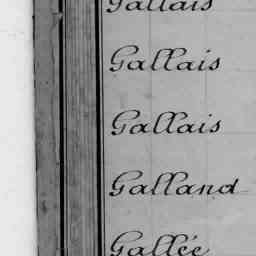 Gallais
Gallais
Gallais
Galland
Gallée